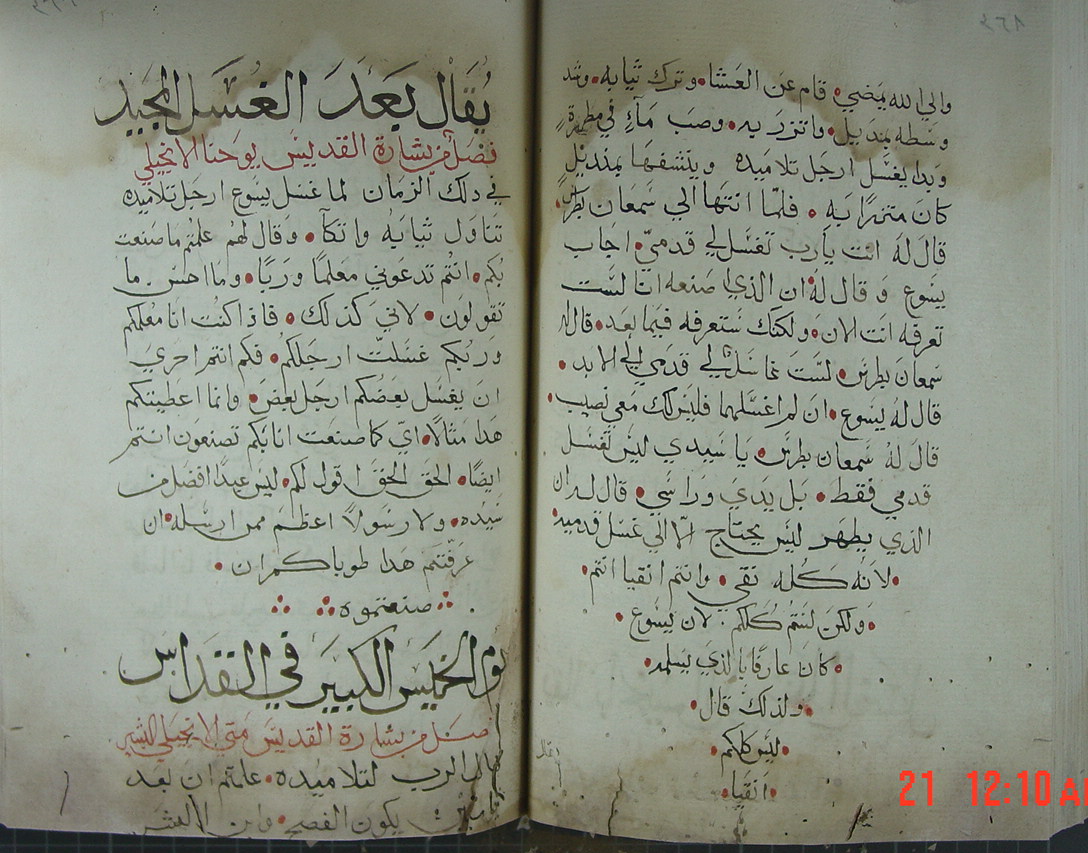 والى الله يمضي • قام عن العشا • وترك ثيابه • وشد
وسطه بمنديل • واتزر به • وصب مآءٍ في مطهرة
وبدا يغسل ارجل تلاميده وينشفها بمنديل
كان متزرًا به • فلمّا انتها الي سمعان بطرس •
قال لهُ انت يارب تغسل لي قدميّ • اجاب
يسوع وقال لهُ • ان الذي اصنعه انا لست
تعرفه انت الان • ولكنك ستعرفه فيما بعد • قال له
سمعان بطرس • لست غاسل لي قدمي الي الابد •
قال لهُ يسوع • ان لم اغسلهما فليس لك معي نصيب •
قال لهُ سمعان بطرس • يا سيدي ليس تغسل
قدمي فقط • بل يدي وراسي • قال له ان
الذي يطهر ليس يحتاج الّا الي غسل قدميه •
• لانه كله نقي • وانتم انقيا انتم •
• ولكن لستم كلكم • لان يسوع •
• كان عارفًا بالذي يسلمه •
• ولذلك قال •
• ليس كلكم •
• انقيا •
يقال بعد الغسل المجيد
فصل من بشارة القديس يوحنا الانجيلي
في ذلك الزمان لما غسل يسوع ارجل تلاميده
تناول ثيابه واتكآ • وقال لهم علمتم ما صنعت
بكم • انتم تدعوني معلمًا وربًا • وما احسن ما
تقولون • لاني كذلك • فاذا كنت انا معلمكم
وربكم غسلت ارجلكم • فكم انتم احري
ان يغسل بعضكم ارجل بعض • وانما اعطيتكم
هدا مثالًا • اي كما صنعت انا بكم تصنعون انتم
ايضًا • الحق الحق اقول لكم • ليس عبدًا افضل من
سيده • ولا رسولًا اعظم ممن ارسله • ان
عرفتم هدا طوباكم ان •
صنعتموه
يوم الخميس الكبير في القداس
فصل من بشارة القديس متي الانجيلي البشير
قال الرب لتلاميده • علمتم ان بعد
يكون الفصح • وابن البشر
21 12:10 A